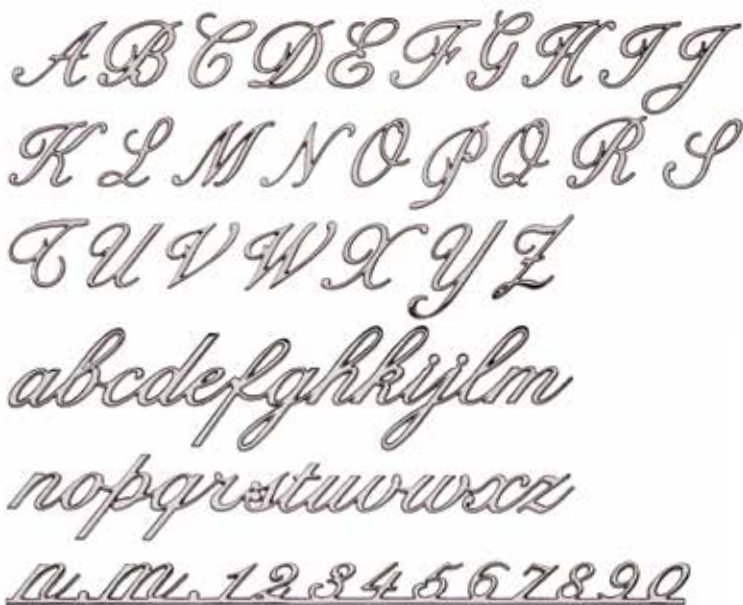 A B C D E F G H I J
K L M N O P Q R S
T U V W X Y Z
abcdefghkijlm
nopqrstuvwxz
n. m. 1 2 3 4 5 6 7 8 9 0